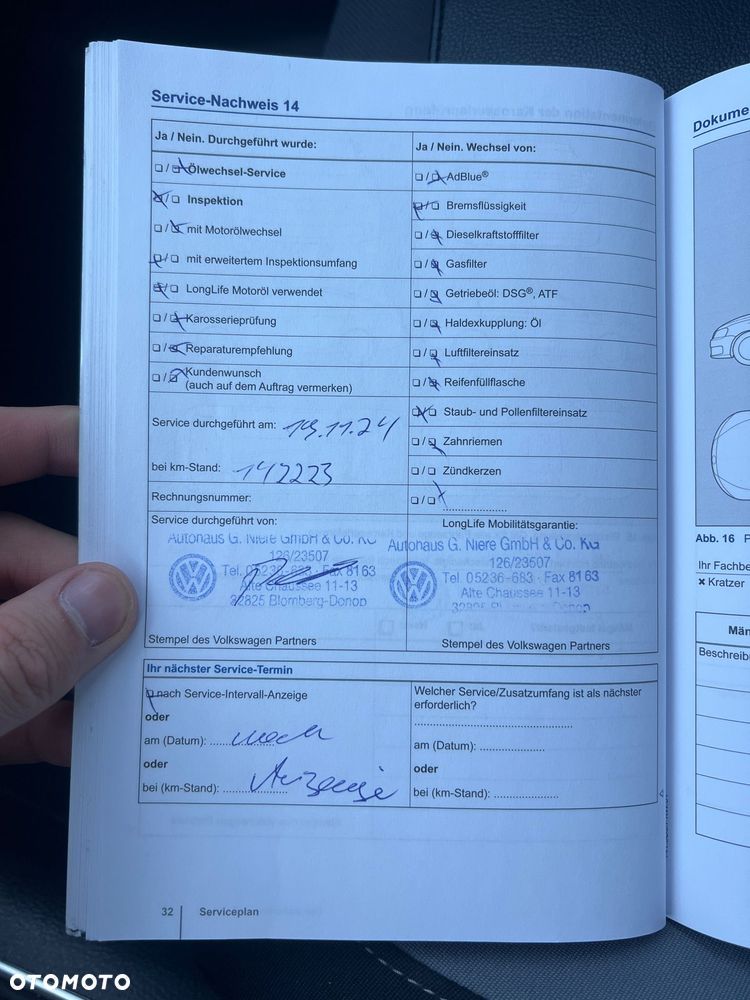 Service-Nachweis 14
Ja / Nein. Durchgeführt wurde:
Ölwechsel-Service
Inspektion
mit Motorölwechsel
mit erweitertem Inspektionsumfang
LongLife Motoröl verwendet
Karosserieprüfung
Reparaturempfehlung
Kundenwunsch
(auch auf dem Auftrag vermerken)
Service durchgeführt am: 19.11.24
bei km-Stand: 142223
Rechnungsnummer:
Service durchgeführt von:
Autohaus G. Niere GmbH & Co. KG
126/23507
Tel. 05236-683 · Fax 8163
Alte Chaussee 11-13
32825 Blomberg-Donop
Stempel des Volkswagen Partners
Ja / Nein. Wechsel von:
AdBlue®
Bremsflüssigkeit
Dieselkraftstofffilter
Gasfilter
Getriebeöl: DSG®, ATF
Haldexkupplung: Öl
Luftfiltereinsatz
Reifenfüllflasche
Staub- und Pollenfiltereinsatz
Zahnriemen
Zündkerzen
LongLife Mobilitätsgarantie:
Autohaus G. Niere GmbH & Co. KG
126/23507
Tel 05236-683 · Fax 8163
Alte Chaussee 11-13
Stempel des Volkswagen Partners
Ihr nächster Service-Termin
nach Service-Intervall-Anzeige
oder
am (Datum): nach
oder
bei (km-Stand): Anzeige
Welcher Service/Zusatzumfang ist als nächster
erforderlich?
am (Datum):
oder
bei (km-Stand):
32 Serviceplan
Dokume
Abb. 16 F
Ihr Fachbe
Kratzer
Män
Beschreib
OTOMOTO